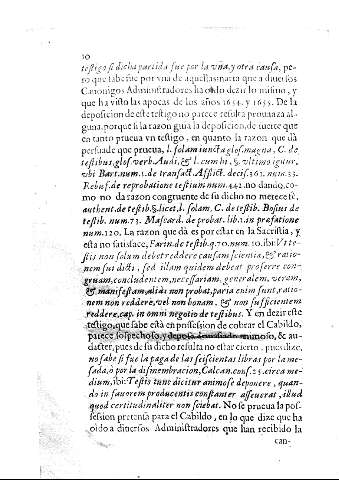 10
testigo si dicha partida fue por la vña, y otra causa, pe-
ro que sabe fue por vna de aquellas
Canonigos Administradores ha oido dezir lo mismo, y
que ha visto las apocas de los años 1654. y 1655. De la
deposicion de este testigo no parece resulta prouança al-
guna, porque si la razon guia la deposicion, de suerte que
en tanto prueua vn testigo, en quanto la razon que dà
persuade que prueua, l. solam iuncta glos. magna, C. de
testibus, glos. verb. Audi, & l. cum hi, §. vltimo igitur,
vbi Bart. num. 1. de transact. Afflict. decis. 362. num. 33.
Rebuf. de reprobatione testium num. 442. no dando, co-
mo no da razon congruente de su dicho no merece fè,
authent. de testib. §. licet, l. solam, C. de testib. Bosius de
testib. num. 73. Mascard. de probat. lib. 1. in præfatione
num. 120. La razon que dà es por estar en la Sacristia, y
esta no satisface, Farin. de testib. q. 70. num. 10. ibi: Vt te-
stis non solum debet reddere causam scientiæ, & ratio-
nem sui dicti, sed illam quidem debeat proferre con-
gruam, concludentem, necessariam, generalem, veram,
& manifestam, aliàs non probat, paria enim sunt, ratio-
nem non reddere, vel non bonam, & non sufficientem
reddere, cap. in omni negotio de testibus. Y en dezir este
testigo, que sabe està en possession de cobrar el Cabildo,
parece sospechoso, y depone demasiado animoso, & au-
dacter, pues de su dicho resulta no estar cierto, pues dize,
no sabe si fue la paga de las seiscientas libras por la me-
sada, ò por la dismembracion, Calcan. cons. 25. circa me-
dium, ibi: Testis tunc dicitur animose deponere, quan-
do in fauorem producentis constanter asseuerat, illud
quod certitudinaliter non sciebat. No se prueua la pos-
session pretensa para el Cabildo, en lo que dize que ha
oido a diuersos Administradores que han recibido la
can-